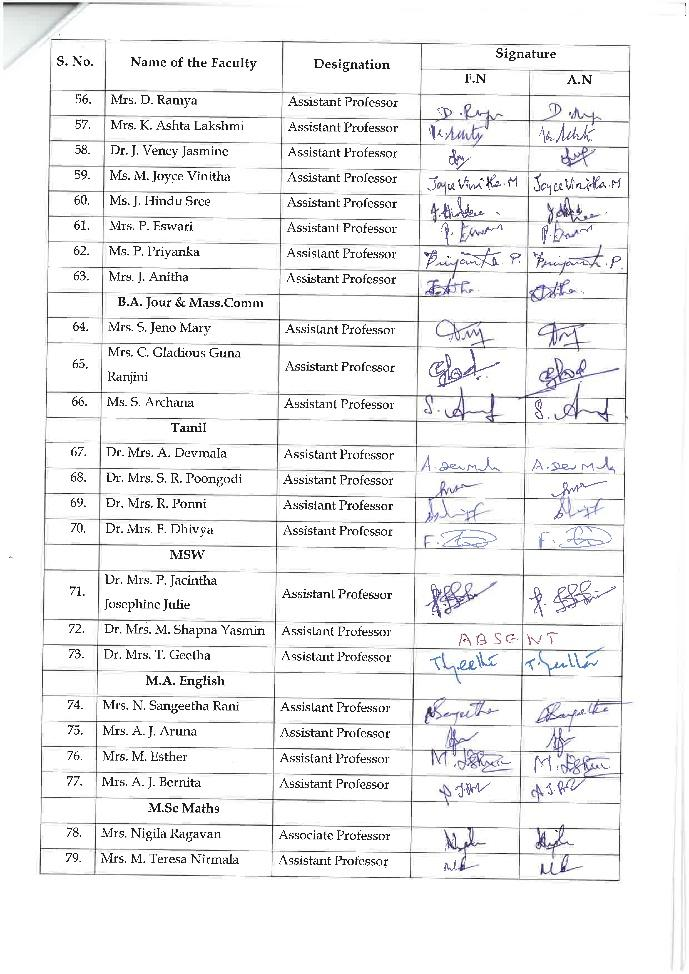 S. No. Name of the Faculty Designation Signature
F.N A.N
56. Mrs. D. Ramya Assistant Professor
57. Mrs. K. Ashta Lakshmi Assistant Professor
58. Dr. J. Vency Jasmine Assistant Professor
59. Ms. M. Joyce Vinitha Assistant Professor Joyce Vinitha.M Joyce Vinitha.M
60. Ms. J. Hindu Sree Assistant Professor
61. Mrs. P. Eswari Assistant Professor
62. Ms. P. Priyanka Assistant Professor
63. Mrs. J. Anitha Assistant Professor
B.A. Jour & Mass.Comm
64. Mrs. S. Jeno Mary Assistant Professor
65. Mrs. C. Gladious Guna Assistant Professor
Ranjini
66. Ms. S. Archana Assistant Professor
Tamil
67. Dr. Mrs. A. Devmala Assistant Professor
68. Dr. Mrs. S. R. Poongodi Assistant Professor
69. Dr. Mrs. R. Ponni Assistant Professor
70. Dr. Mrs. E. Dhivya Assistant Professor
MSW
71. Dr. Mrs. P. Jacintha Assistant Professor
Josephine Julie
72. Dr. Mrs. M. Shapna Yasmin Assistant Professor ABSENT
73. Dr. Mrs. T. Geetha Assistant Professor
M.A. English
74. Mrs. N. Sangeetha Rani Assistant Professor
75. Mrs. A. J. Aruna Assistant Professor
76. Mrs. M. Esther Assistant Professor
77. Mrs. A. J. Bernita Assistant Professor
M.Sc Maths
78. Mrs. Nigila Ragavan Associate Professor
79. Mrs. M. Teresa Nirmala Assistant Professor